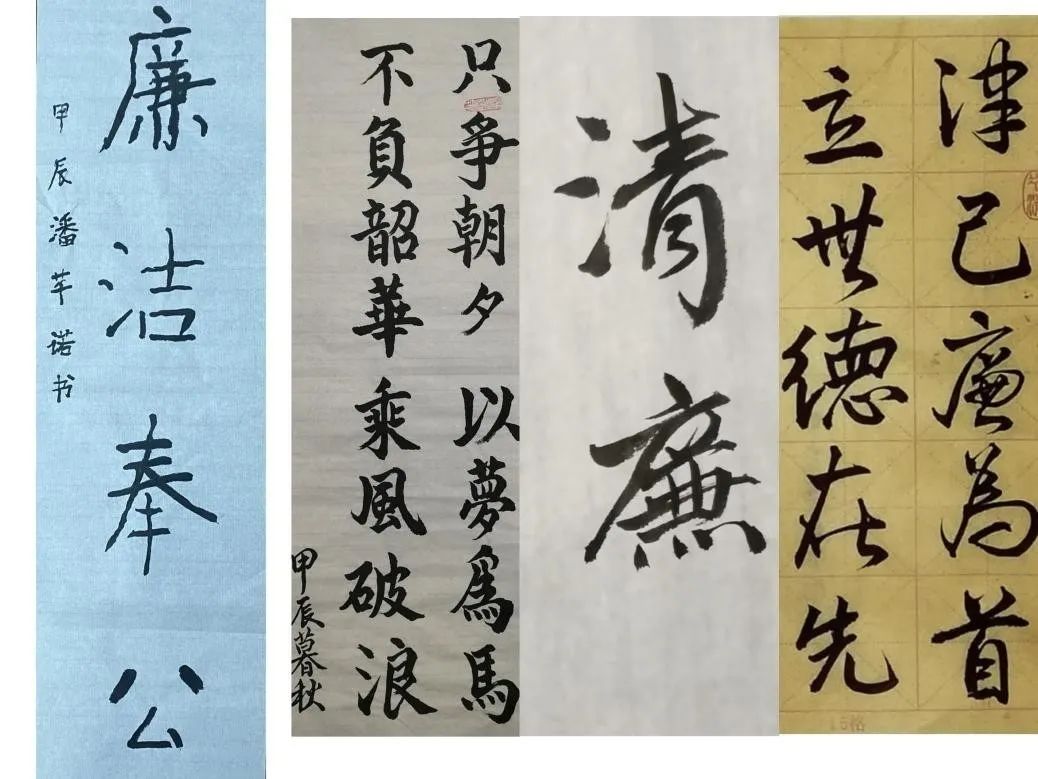 廉洁奉公
甲辰潘芊诺书
只爭朝夕 以夢爲馬
不負韶華 乘風破浪
甲辰暮秋
清廉
律己廉為首
立世德在先
15格